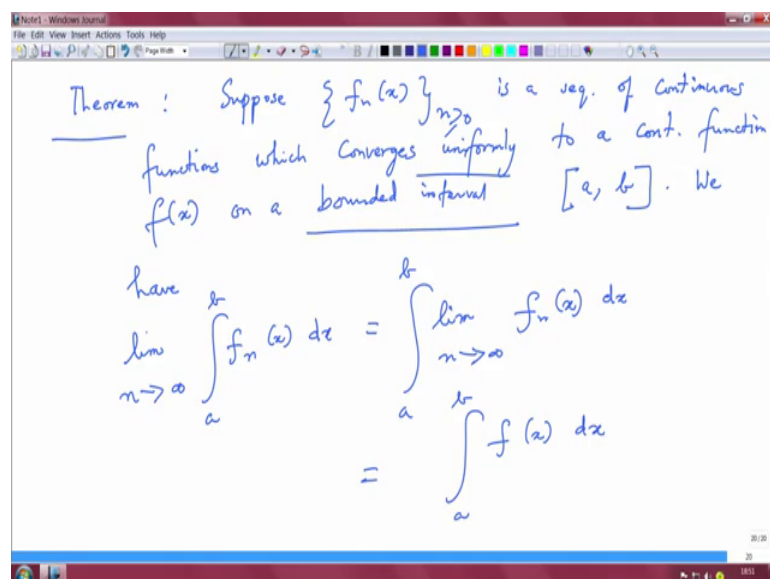 Note1 - Windows Journal
File Edit View Insert Actions Tools Help
Page Width
Theorem : Suppose { fn (x) } n≥0 is a seq. of continuous
functions which converges uniformly to a cont. function
f(x) on a bounded interval [a, b]. We
have
lim n→∞ ∫ₐᵇ fn (x) dx = ∫ₐᵇ lim n→∞ fn (x) dx
= ∫ₐᵇ f (x) dx
20/20
20
18:51